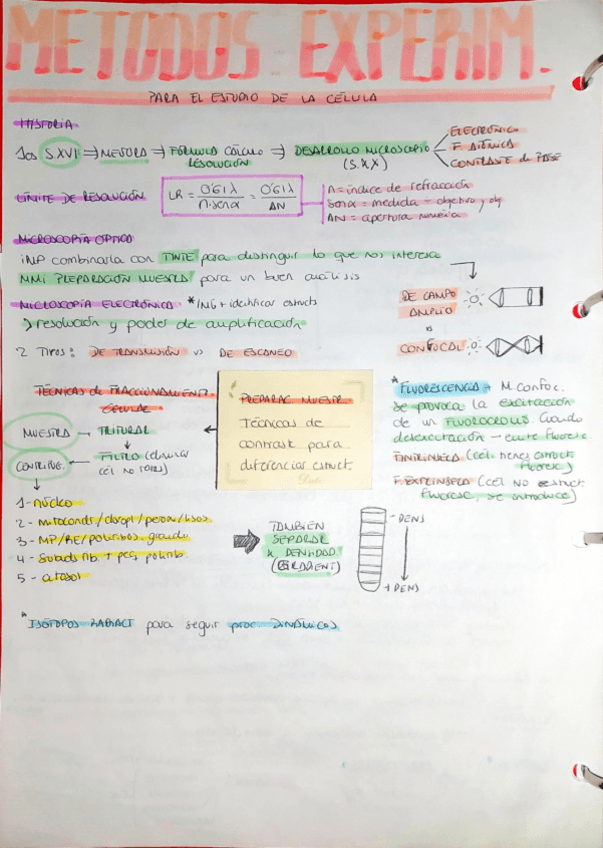 METODOS EXPERIM.
PARA EL ESTUDIO DE LA CÉLULA
HISTORIA
1os S.XVI ⇒ MEJORA ⇒ FÓRMULA CÁLCULO RESOLUCIÓN ⇒ DESARROLLO MICROSCOPIO (S.XX)
ELECTRÓNICO
F. ATÓMICA
CONTRASTE de FASE
LÍMITE DE RESOLUCIÓN
LR = 0'61λ / n·senα = 0'61λ / AN
n = índice de refracción
senα = medida - objetivo y obj
AN = apertura numérica
MICROSCOPÍA OPTICO
iMP combinarla con TINTE para distinguir lo que nos interesa
MMi PREPARACIÓN MUESTRA para un buen análisis
DE CAMPO AMPLIO
vs
CONFOCAL
MICROSCOPÍA ELECTRÓNICA: * iNG + identificar estruct
resolución y poder de amplificación
2 TIPOS: DE TRANSMISIÓN vs DE ESCANEO
TÉCNICAS de FRACCIONAMIENTO CELULAR
MUESTRA → TRITURAR
FILTRO (elimina cél no rotas)
CENTRIFUG.
PREPARAC MUESTR.
TÉCNICAS DE
contraste para
diferenciar estruct.
* FLUORESCENCIA + M. CONFOC.
se provoca la excitación
de un FLUOROCROMO. Cuando
desexcitación — emite fluoresc
F. INTRINSECA (cél. tienes estruct fluoresc)
F. EXTRINSECA (cél NO estruct fluoresc, se introduce)
1 - núcleo
2 - mitocond/cloropl/perox/lisos
3 - MP/RE/poliribos. grande
4 - Subads rib. + peq. polirib.
5 - citosol
TAMBIÉN
SEPARAR
X DENSIDAD
(GRADIENT)
- DENS
+ DENS
* ISÓTOPOS RADIACT para seguir proc. DINÁMICOS